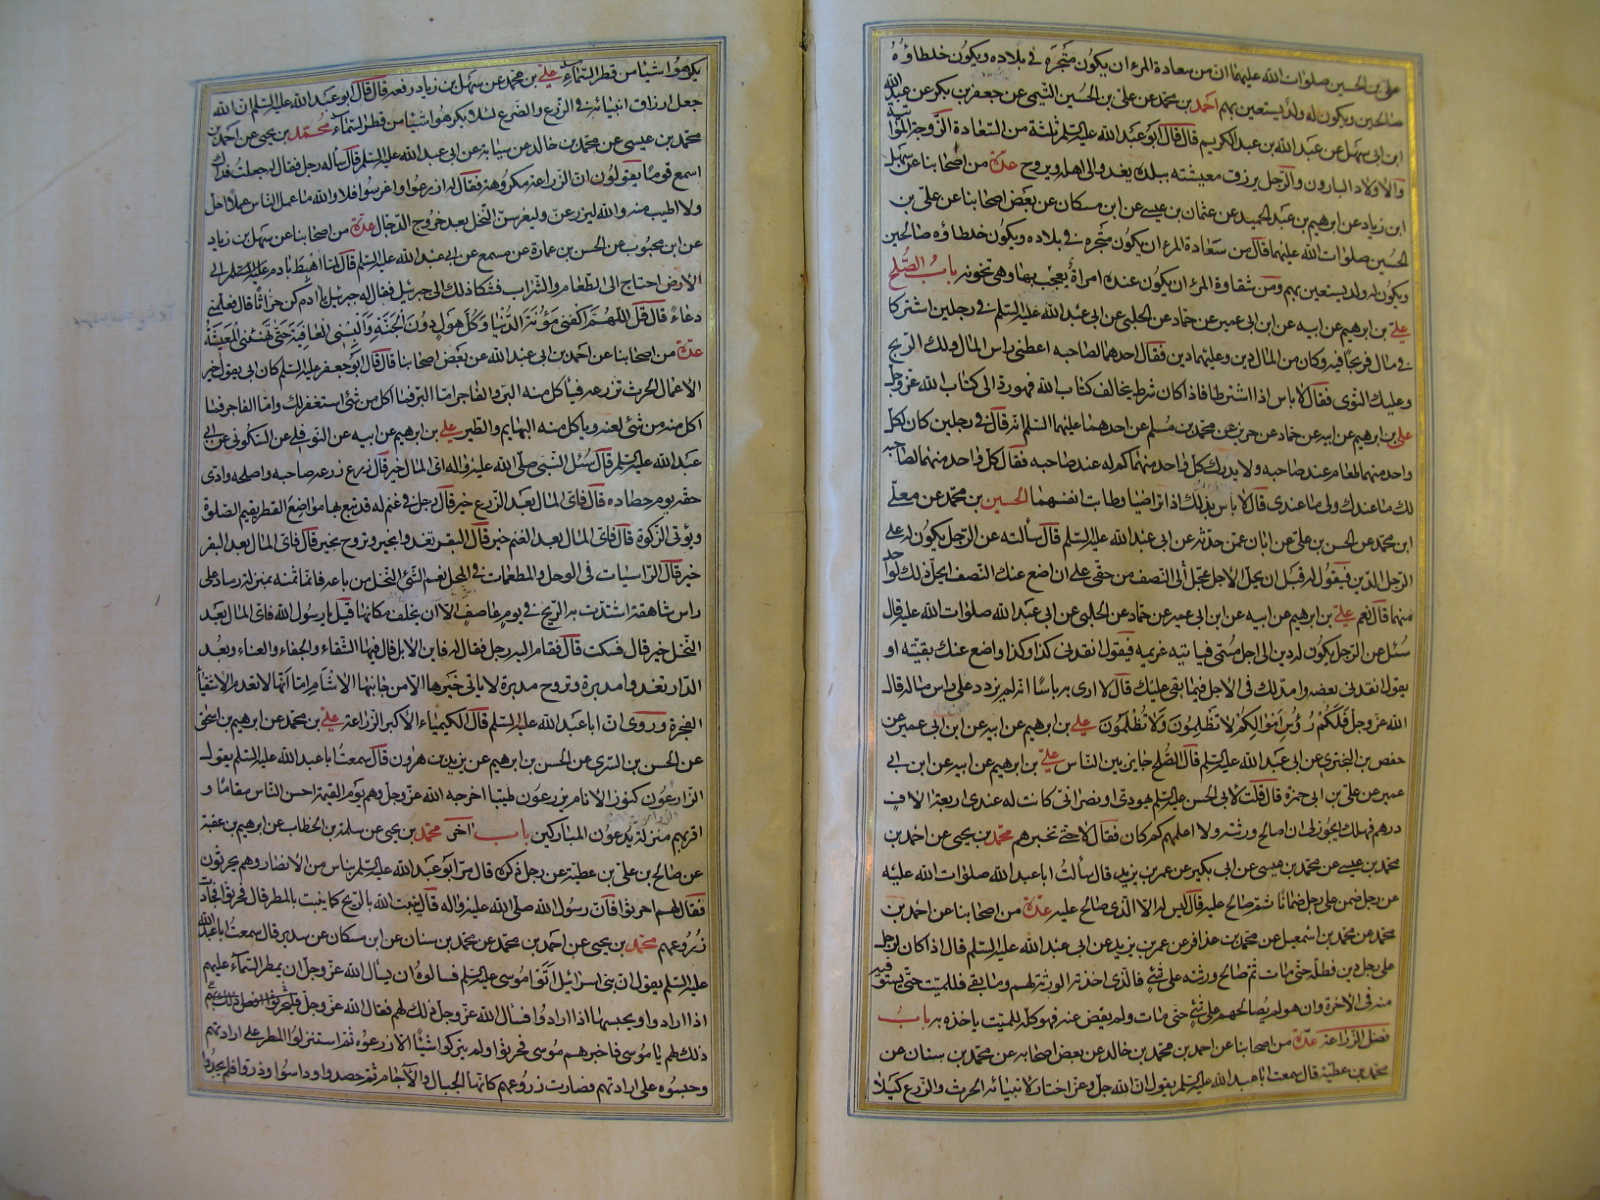 علي بن الحسين صلوات الله عليهما ان من سعادة المرء ان يكون متجره في بلاده ويكون خلطاؤه
صالحين ويكون له ولد يستعين بهم احمد بن محمد عن علي بن الحسين التيمي عن جعفر بن بكر عن عبد الله
ابن ابي سهل عن عبد الله بن عبد الكريم قال قال ابو عبد الله عليه السلم ثلثة من السعادة الزوجة المؤاتية
والاولاد البارون والرجل يرزق معيشته ببلده يغدو الى اهله ويروح عدة من اصحابنا عن سهل
ابن زياد عن ابرهيم بن عبد الحميد عن عثمان بن عيسى عن ابن مسكان عن بعض اصحابنا عن علي بن
الحسين صلوات الله عليهما قال من سعادة المرء ان يكون متجره في بلاده ويكون خلطاؤه صالحين
ويكون له ولد يستعين بهم ومن شقاوة المرء ان يكون عنده امراة يعجب بها وهي تخونه باب الصلح
علي بن ابرهيم عن ابيه عن ابن ابي عمير عن حماد عن الحلبي عن ابي عبد الله عليه السلم في رجلين اشتركا
في مال فربحا فيه وكان من المال دين وعليهما دين فقال احدهما لصاحبه اعطني راس المال ولك الربح
وعليك التوى فقال لا باس اذا اشترطا فاذا كان شرط يخالف كتاب الله فهو رد الى كتاب الله عز وجل
علي بن ابرهيم عن ابيه عن حماد عن حريز عن محمد بن مسلم عن احدهما عليهما السلم انه قال في رجلين كان لكل
واحد منهما طعام عند صاحبه ولا يدري كل واحد منهما كم له عند صاحبه فقال كل واحد منهما لصاحبه
لك ما عندك ولي ما عندي قال لا باس بذلك اذا تراضيا وطابت انفسهما الحسين بن محمد عن معلى
ابن محمد عن الحسن بن علي عن ابان عمن حدثه عن ابي عبد الله عليه السلم قال سالته عن الرجل يكون له على
الرجل الدين فيقول له قبل ان يحل الاجل عجل لي النصف من حقي على ان اضع عنك النصف ايحل ذلك لواحد
منهما قال نعم علي بن ابرهيم عن ابيه عن ابن ابي عمير عن حماد عن الحلبي عن ابي عبد الله صلوات الله عليه قال
سئل عن الرجل يكون له دين الى اجل مسمى فياتيه غريمه فيقول انقدني كذا وكذا واضع عنك بقيته او
يقول انقدني بعضه وامد لك في الاجل فيما بقي عليك قال لا ارى به باسا انه لم يزدد على راس ماله قال
الله عز وجل فلكم رؤس اموالكم لا تظلمون ولا تظلمون علي بن ابرهيم عن ابيه عن ابن ابي عمير عن
حفص بن البختري عن ابي عبد الله عليه السلم قال الصلح جايز بين الناس علي بن ابرهيم عن ابيه عن ابن ابي
عمير عن علي بن ابي حمزة قال قلت لابي الحسن عليه السلم يهودي او نصراني كانت له عندي اربعة الاف
درهم فهلك ايجوز لي ان اصالح ورثته ولا اعلمهم كم كان فقال لا حتى تخبرهم محمد بن يحيى عن احمد بن
محمد بن عيسى عن محمد بن عيسى عن ابي بكير عن عمر بن يزيد قال سألت ابا عبد الله صلوات الله عليه
عن رجل ضمن على رجل ضمانا ثم صالح عليه قال ليس له الا الذي صالح عليه عدة من اصحابنا عن احمد بن
محمد عن محمد بن اسمعيل عن محمد بن عذافر عن عمر بن يزيد عن ابي عبد الله عليه السلم قال اذا كان لرجل
على رجل دين فمطله حتى مات ثم صالح ورثته على شئ فالذي اخذته الورثة لهم وما بقي فللميت حتى يستوفيه
منه في الاخرة وان هو لم يصالحهم على شئ حتى مات ولم يقض عنه فهو كله للميت ياخذه به باب
فضل الزراعة عدة من اصحابنا عن احمد بن محمد بن خالد عن بعض اصحابه عن محمد بن سنان عن
محمد بن عطية قال سمعت ابا عبد الله عليه السلم يقول ان الله جل وعز اختار لانبيائه الحرث والزرع كيلا
يكرهوا شيئا من قطر السماء علي بن محمد عن سهل بن زياد رفعه قال قال ابو عبد الله عليه السلم ان الله
جعل ارزاق انبيائه في الزرع والضرع لئلا يكرهوا شيئا من قطر السماء محمد بن يحيى عن احمد بن
محمد بن عيسى عن محمد بن خالد عن سيابة عن ابي عبد الله عليه السلم قال ساله رجل فقال له جعلت فداك
اسمع قوما يقولون ان الزراعة مكروهة فقال له ازرعوا واغرسوا فلا والله ما عمل الناس عملا احل
ولا اطيب منه والله ليزرعن وليغرسن النخل بعد خروج الدجال عدة من اصحابنا عن سهل بن زياد
عن ابن محبوب عن الحسن بن عمارة عن مسمع عن ابي عبد الله عليه السلم قال لما اهبط بادم عليه السلم الى
الارض احتاج الى الطعام والشراب فشكا ذلك الى جبرئيل فقال له جبرئيل يا ادم كن حراثا قال فعلمني
دعاء قال قل اللهم اكفني مؤنة الدنيا وكل هول دون الجنة والبسني العافية حتى تهنئني المعيشة
عدة من اصحابنا عن احمد بن ابي عبد الله عن بعض اصحابنا قال قال ابو جعفر عليه السلم كان ابي يقول خير
الاعمال الحرث تزرعه فياكل منه البر والفاجر اما البر فما اكل من شئ استغفر لك واما الفاجر فما
اكل منه من شئ لعنه وياكل منه البهايم والطير علي بن ابرهيم عن ابيه عن النوفلي عن السكوني عن ابي
عبد الله عليه السلم قال سئل النبي صلى الله عليه واله اي المال خير قال زرع زرعه صاحبه واصلحه وادى
حقه يوم حصاده قال فاي المال بعد الزرع خير قال رجل في غنم له قد تبع بها مواضع القطر يقيم الصلوة
ويؤتي الزكوة قال فاي المال بعد الغنم خير قال البقر تغدو بخير وتروح بخير قال فاي المال بعد البقر
خير قال الراسيات في الوحل والمطعمات في المحل نعم الشئ النخل من باعه فانما ثمنه بمنزلة رماد على
راس شاهقة اشتدت به الريح في يوم عاصف الا ان يخلف مكانها قيل يا رسول الله فاي المال بعد
النخل خير قال فسكت قال فقام اليه رجل فقال له فاين الابل قال فيها الشقاء والجفاء والعناء وبعد
الدار تغدو مدبرة وتروح مدبرة لا ياتي خيرها الا من جانبها الاشأم اما انها لا تعدم الاشقياء
الفجرة وروي ان ابا عبد الله عليه السلم قال الكيمياء الاكبر الزراعة علي بن محمد عن ابرهيم بن اسحق
عن الحسن بن السري عن الحسن بن ابرهيم عن يزيد بن هرون قال سمعت ابا عبد الله عليه السلم يقول
الزارعون كنوز الانام يزرعون طيبا اخرجه الله عز وجل وهم يوم القيمة احسن الناس مقاما و
اقربهم منزلة يدعون المباركين باب اخر محمد بن يحيى عن سلمة بن الخطاب عن ابرهيم بن عقبة
عن صالح بن علي بن عطية عن رجل ذكره قال مر ابو عبد الله عليه السلم بناس من الانصار وهم يحرثون
فقال لهم احرثوا فان رسول الله صلى الله عليه واله قال ينبت الله بالريح كما ينبت بالمطر قال فحرثوا فجادت
زروعهم محمد بن يحيى عن احمد بن محمد عن محمد بن سنان عن ابن مسكان عن سدير قال سمعت ابا عبد الله
عليه السلم يقول ان بني اسرائيل اتوا موسى عليه السلم فسالوه ان يسأل الله عز وجل ان يمطر السماء عليهم
اذا ارادوا ويحبسها اذا ارادوا فسأل الله عز وجل ذلك لهم فقال الله عز وجل
ذلك لهم يا موسى فاخبرهم موسى فحرثوا ولم يتركوا شيئا الا زرعوه ثم استنزلوا المطر على ارادتهم
وحبسوه على ارادتهم فصارت زروعهم كانها الجبال والاجام ثم حصدوا وداسوا وذروا فلم يجدوا